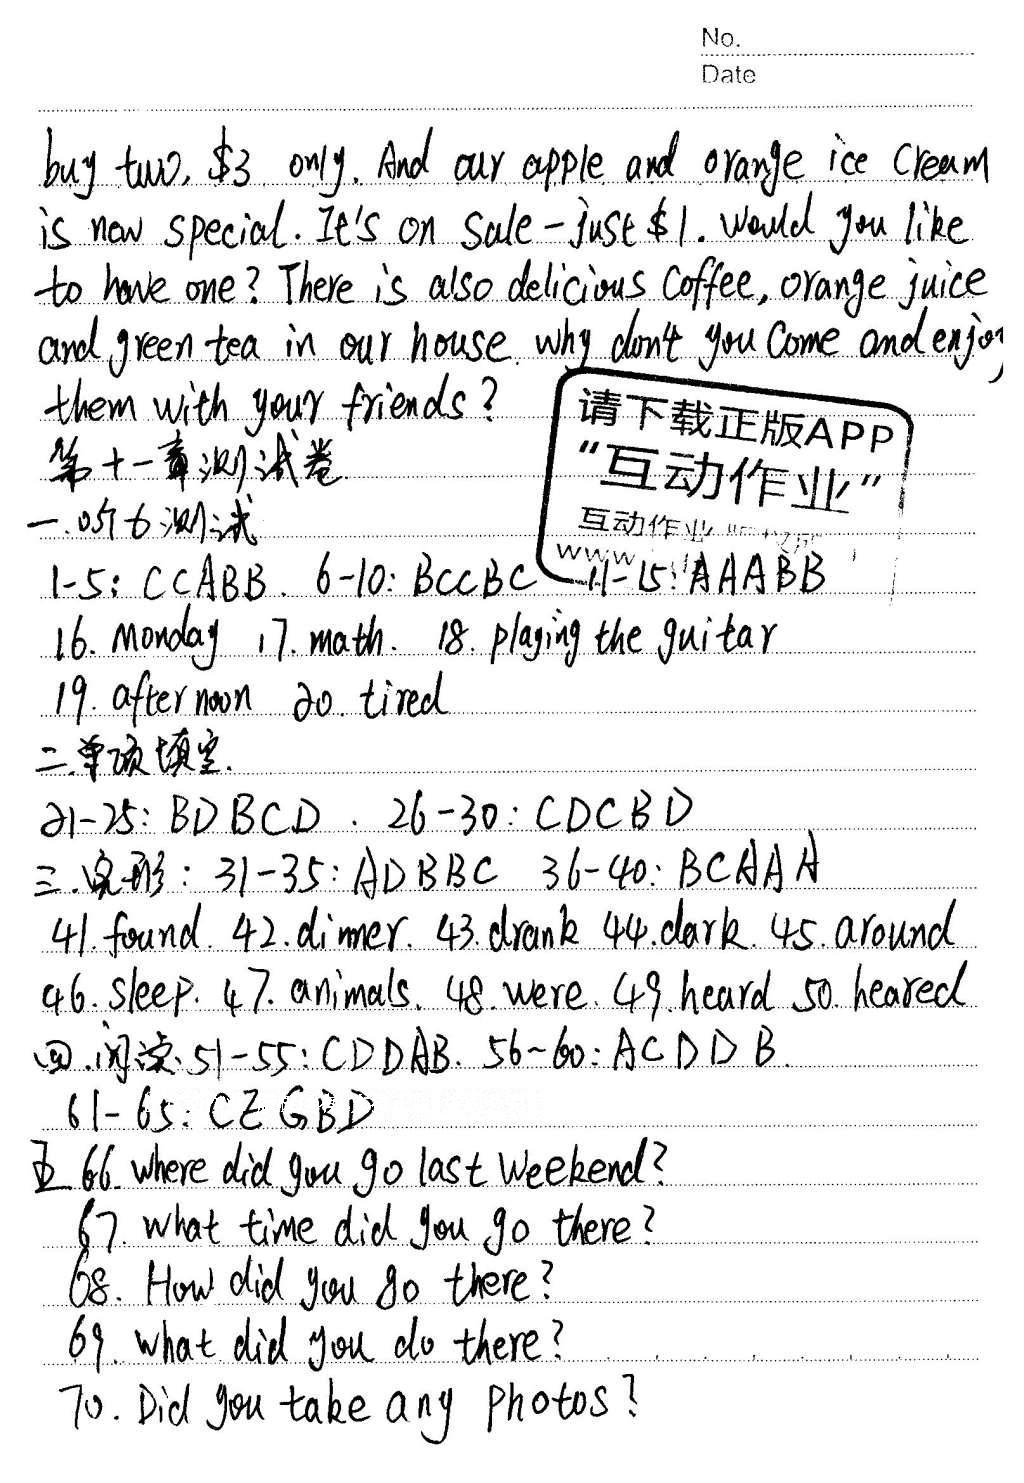 No.
Date
buy two, $3 only. And our apple and orange ice cream
is now special. It's on sale - just $1. would you like
to have one? There is also delicious coffee, orange juice
and green tea in our house. why don't you come and enjoy
them with your friends?
请下载正版APP
“互动作业”
互动作业
www
第十一章测试卷
一.听力测试
1-5: CCABB. 6-10: BCCBC 11-15: AAABB
16. Monday 17. math. 18. playing the guitar
19. afternoon 20. tired
二.单项填空.
21-25: BDBCD. 26-30: CDCBD
三.完形: 31-35: ADBBC 36-40: BCAAA
41. found. 42. dinner. 43. drank 44. dark. 45. around
46. sleep. 47. animals. 48. were. 49. heard 50. heared
四.阅读: 51-55: CDDAB. 56~60: ACDDB.
61-65: CEGBD
五 66. where did you go last weekend?
67. what time did you go there?
68. How did you go there?
69. what did you do there?
70. Did you take any photos?